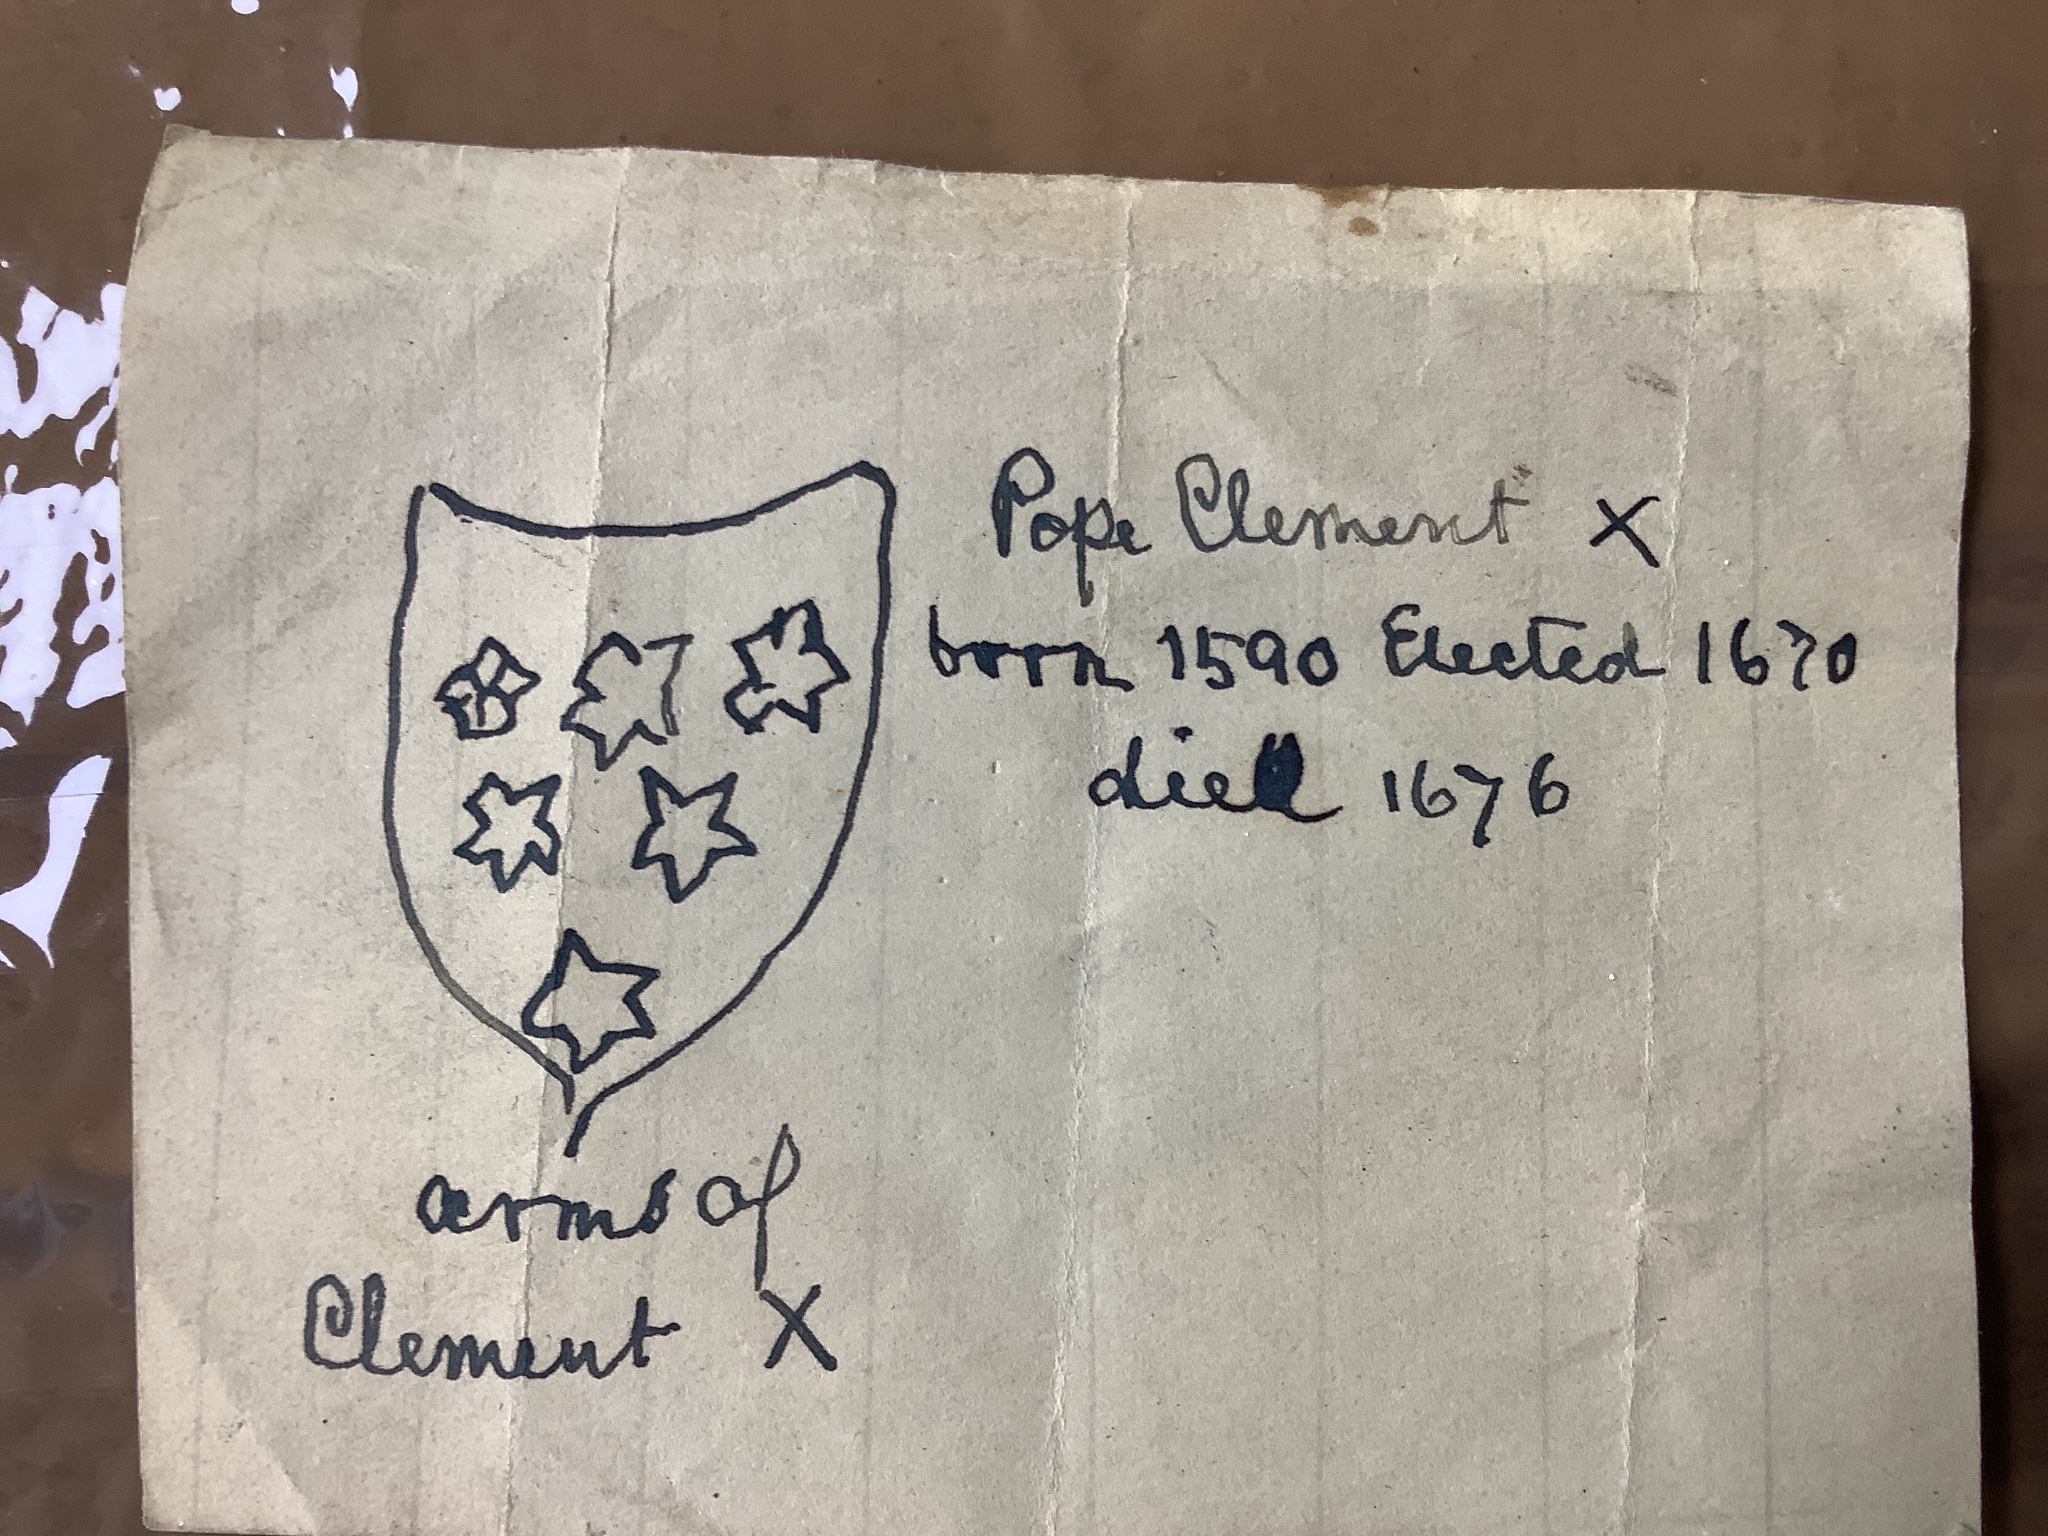 Pope Clement X
born 1590 Elected 1670
died 1676
arms of
Clement X